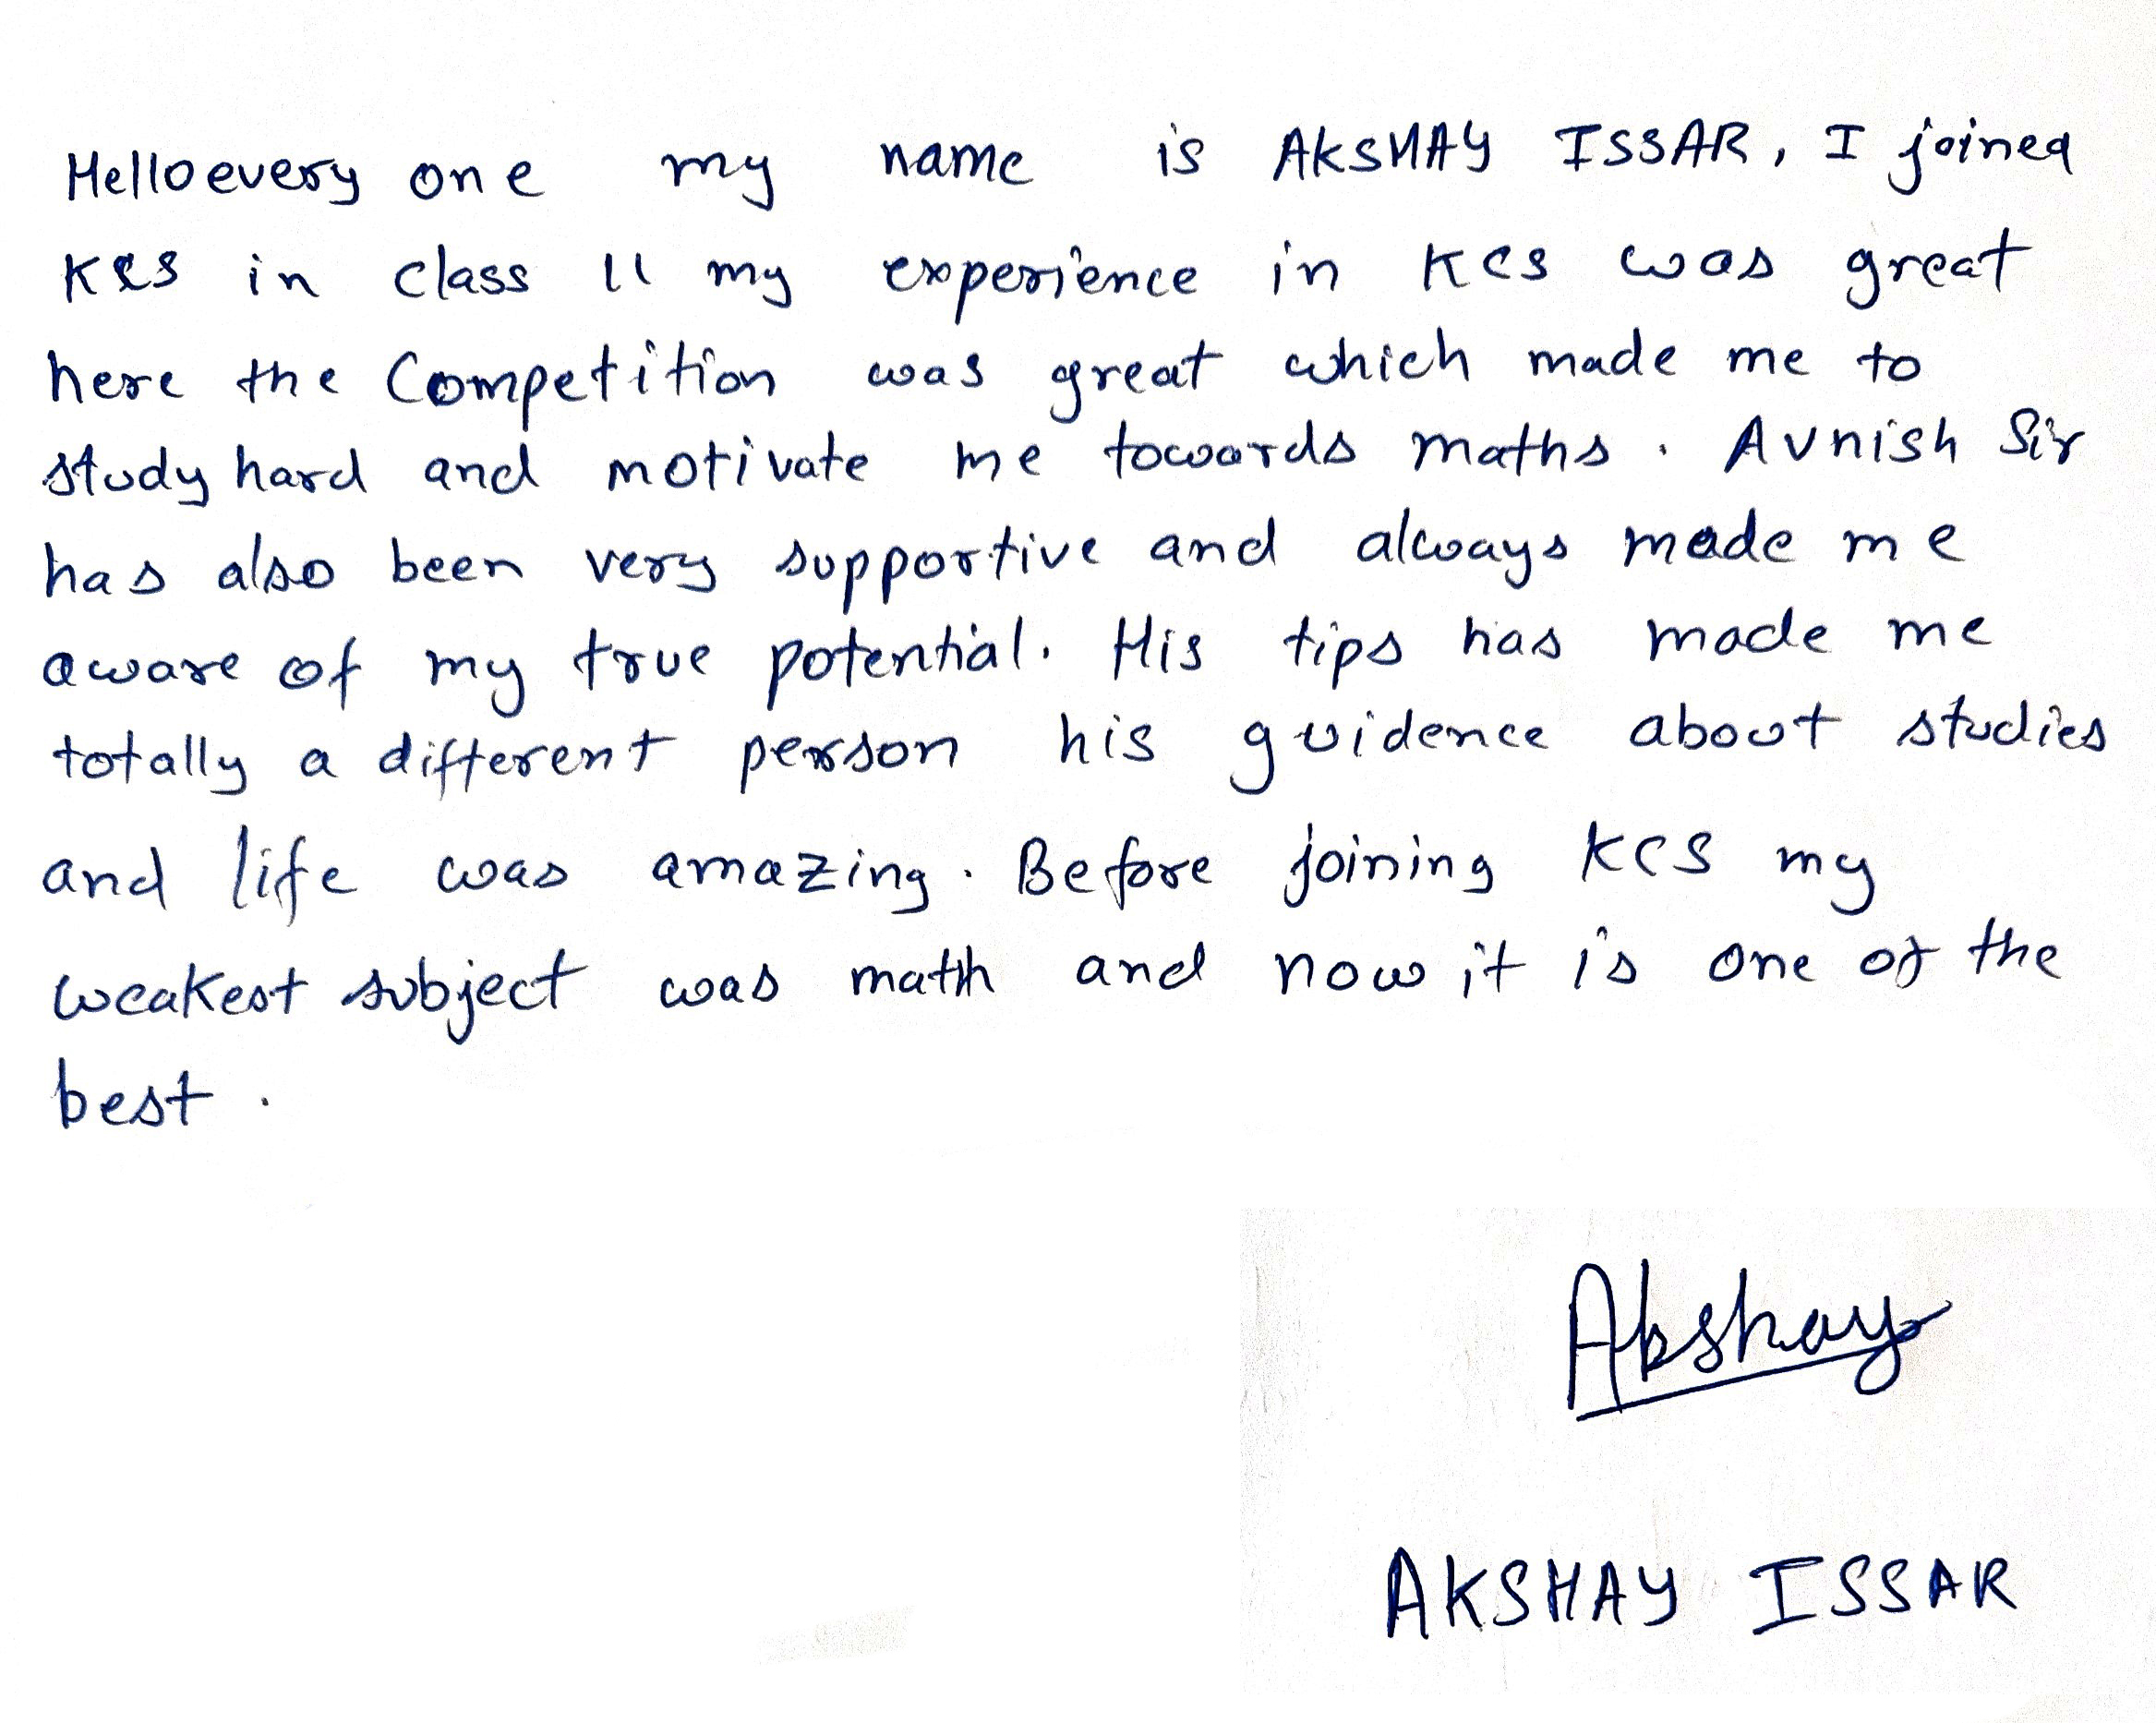 Hello every one my name is AKSHAY ISSAR, I joined
KCS in class 11 my experience in KCS was great
here the Competition was great which made me to
study hard and motivate me towards maths. Avnish Sir
has also been very supportive and always made me
aware of my true potential. His tips has made me
totally a different person his guidence about studies
and life was amazing. Before joining KCS my
weakest subject was math and now it is one of the
best.
Akshay
AKSHAY ISSAR